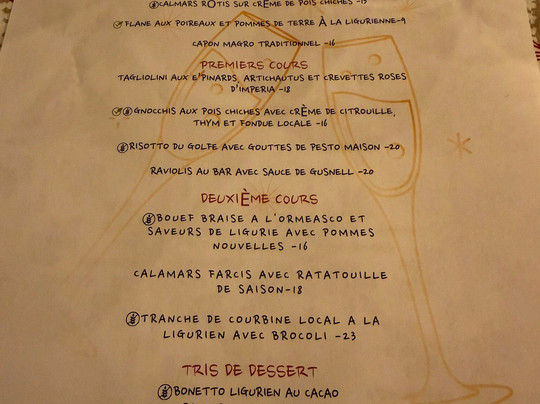 CALMARS ROTIS SUR CRÈME DE POIS CHICHES -15
FLANE AUX POIREAUX ET POMMES DE TERRE À LA LIGURIENNE-9
CAPON MAGRO TRADITIONNEL -16
PREMIERS COURS
TAGLIOLINI AUX E'PINARDS, ARTICHAUTUS ET CREVETTES ROSES
D'IMPERIA -18
GNOCCHIS AUX POIS CHICHES AVEC CRÈME DE CITROUILLE,
THYM ET FONDUE LOCALE -16
RISOTTO DU GOLFE AVEC GOUTTES DE PESTO MAISON -20
RAVIOLIS AU BAR AVEC SAUCE DE GUSNELL -20
DEUXIÈME COURS
BOUEF BRAISE A L'ORMEASCO ET
SAVEURS DE LIGURIE AVEC POMMES
NOUVELLES -16
CALAMARS FARCIS AVEC RATATOUILLE
DE SAISON-18
TRANCHE DE COURBINE LOCAL A LA
LIGURIEN AVEC BROCOLI -23
TRIS DE DESSERT
BONETTO LIGURIEN AU CACAO